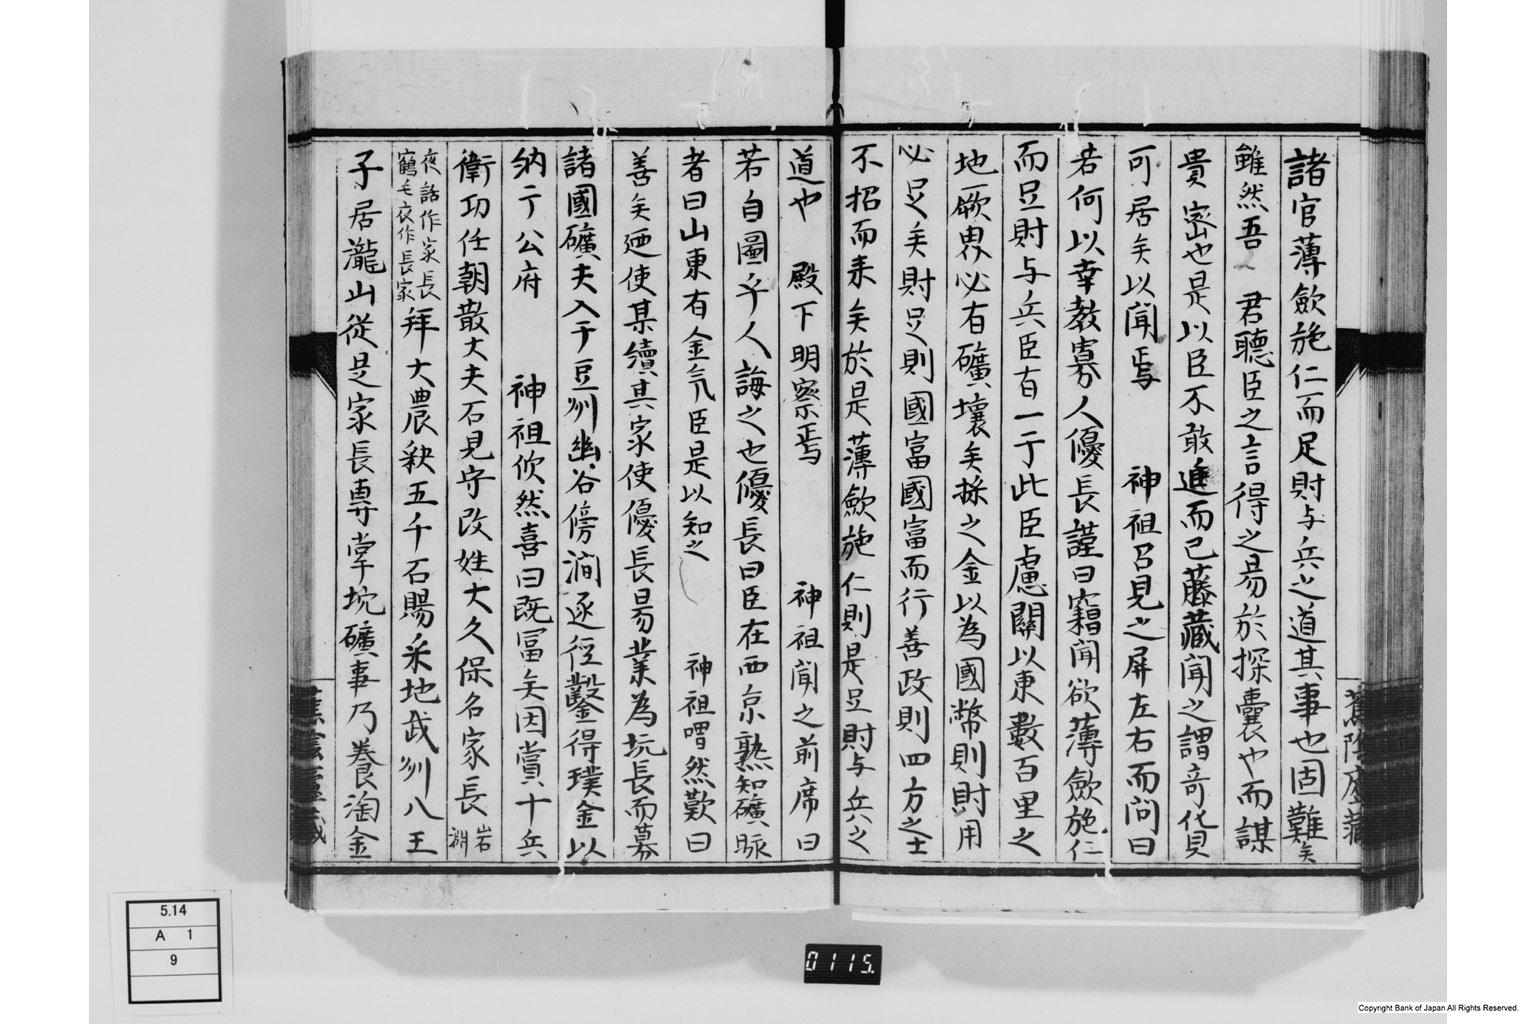 諸官薄歛施仁而足財与兵之道其事也固難矣
雖然吾 君聽臣之言得之易於探囊也而謀
貴密也是以臣不敢進而已藤藏聞之謂奇貨
可居矣以聞焉 神祖召見之屏左右而问曰
若何以幸教寡人優長謹曰竊聞欲薄歛施仁
而足財与兵臣有一于此臣慮關以東數百里之
地厥界必有礦壤矣採之金以為國幣則財用
必足矣財足則國富國富而行善政則四方之士
不招而来矣於是薄歛施仁則是足財与兵之
道也 殿下明察焉 神祖聞之前席曰
若自圖乎人誨之也優長曰臣在西京熟知礦脉
者曰山東有金气臣是以知之 神祖喟然歎曰
善矣廼使某續其家使優長易業為坑長而募
諸國礦夫入于豆州幽谷傍澗逐徑鑿得璞金以
納于公府 神祖欣然喜曰既冨矣因賞十兵
衛功任朝散大夫石見守改姓大久保名家長 岩淵
夜話作家長鶴毛衣作長家 拜大農秩五千石賜采地武州八王
子居瀧山從是家長專掌坑礦事乃養淘金
5.14
A 1
9
0115.
Copyright Bank of Japan All Rights Reserved.